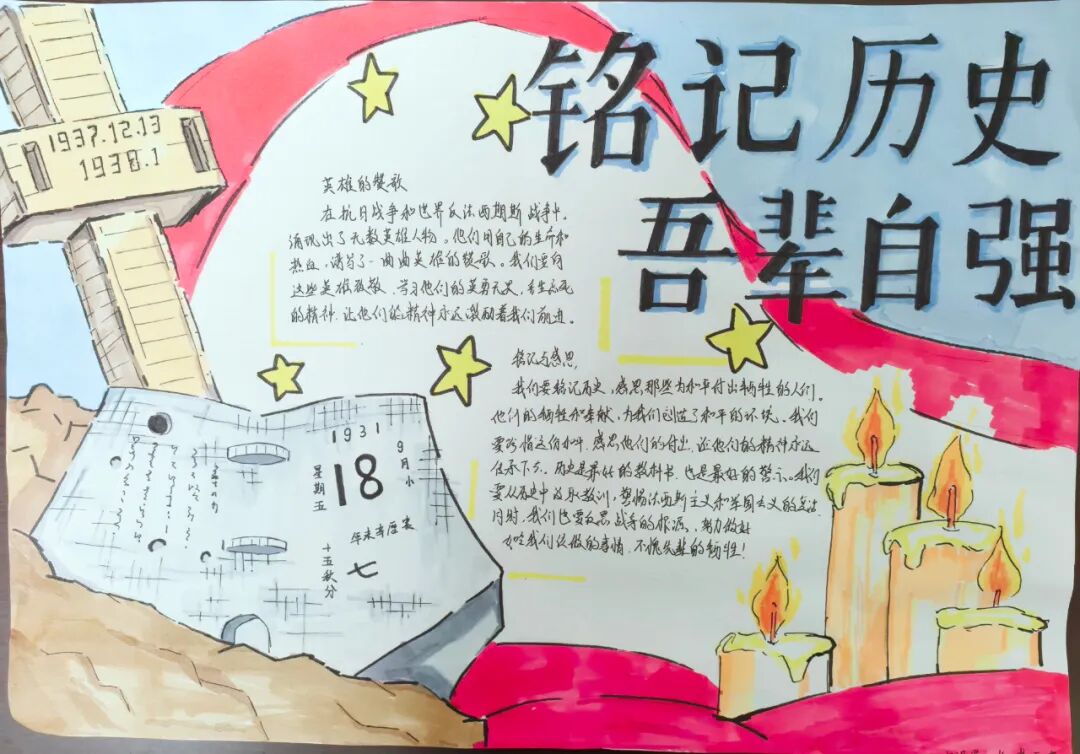 铭记历史
吾辈自强
1937.12.13
1938.1
英雄的赞歌
在抗日战争和世界反法西斯战争中,
涌现出了无数英雄人物。他们用自己的生命和
热血,谱写了一曲曲英雄的赞歌。我们要向
这些英雄致敬,学习他们的英勇无畏,
的精神,让他们的精神永远激励着我们前进。
铭记与感恩,
我们要铭记历史,感恩那些为和平付出牺牲的人们。
他们的牺牲和奉献,为我们创造了和平的环境。我们
要珍惜这份和平,感恩他们的付出,让他们的精神永远
传承下去。历史是最好的教科书,也是最好的警示。我们
要从历史中汲取教训,警惕法西斯主义和军国主义的
同时,我们也要反思战争的根源,努力做好
我们该做的事情,不愧先辈的牺牲!
1931
9月小
18
星期五
年未辛历农
七
十五秋分